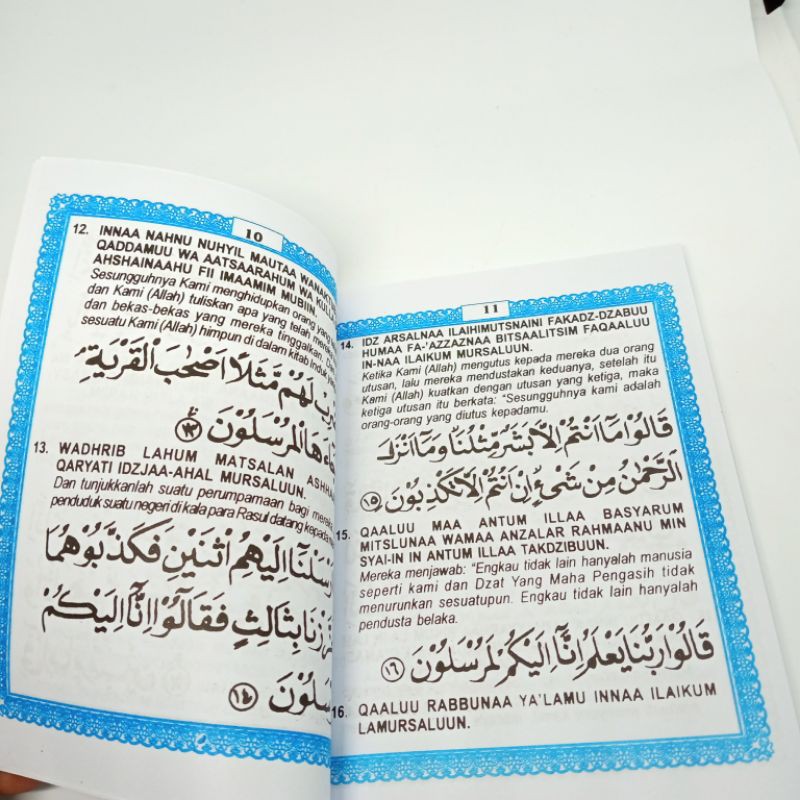 10
12. INNAA NAHNU NUHYIL MAUTAA
QADDAMUU WA AATSAARAHUM WA
AHSHAINAAHU FII IMAAMIM MUBIIN.
Sesungguhnya Kami menghidupkan orang yang
dan Kami (Allah) tuliskan apa yang telah mereka
dan bekas-bekas yang mereka tinggalkan.
sesuatu Kami (Allah) himpun di dalam kitab Induk
لَهُمْ مَثَلًا اَصْحٰبَ الْقَرْيَةِۘ
الْمُرْسَلُوْنَ ١٣
13. WADHRIB LAHUM MATSALAN
QARYATI IDZJAA-AHAL MURSALUUN.
Dan tunjukkanlah suatu perumpamaan bagi
penduduk suatu negeri di kala para Rasul datang kepada
اِلَيْهِمُ اثْنَيْنِ فَكَذَّبُوْهُمَا
بِثَالِثٍ فَقَالُوْٓا اِنَّآ اِلَيْكُمْ
١٤
11
14. IDZ ARSALNAA ILAIHIMUTSNAINI FAKADZ-DZABUU
HUMAA FA-'AZZAZNAA BITSAALITSIM FAQAALUU
IN-NAA ILAIKUM MURSALUUN.
Ketika Kami (Allah) mengutus kepada mereka dua orang
utusan, lalu mereka mendustakan keduanya, setelah itu
Kami (Allah) kuatkan dengan utusan yang ketiga, maka
ketiga utusan itu berkata: "Sesungguhnya kami adalah
orang-orang yang diutus kepadamu.
قَالُوْا مَآ اَنْتُمْ اِلَّا بَشَرٌ مِّثْلُنَا وَمَآ اَنْزَلَ
الرَّحْمٰنُ مِنْ شَيْءٍ اِنْ اَنْتُمْ اِلَّا تَكْذِبُوْنَ ١٥
15. QAALUU MAA ANTUM ILLAA BASYARUM
MITSLUNAA WAMAA ANZALAR RAHMAANU MIN
SYAI-IN IN ANTUM ILLAA TAKDZIBUUN.
Mereka menjawab: "Engkau tidak lain hanyalah manusia
seperti kami dan Dzat Yang Maha Pengasih tidak
menurunkan sesuatupun. Engkau tidak lain hanyalah
pendusta belaka.
قَالُوْا رَبُّنَا يَعْلَمُ اِنَّآ اِلَيْكُمْ لَمُرْسَلُوْنَ ١٦
16. QAALUU RABBUNAA YA'LAMU INNAA ILAIKUM
LAMURSALUUN.